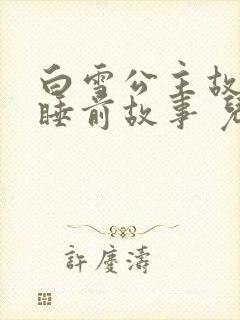 白雪公主故
睡前故事
許慶濤